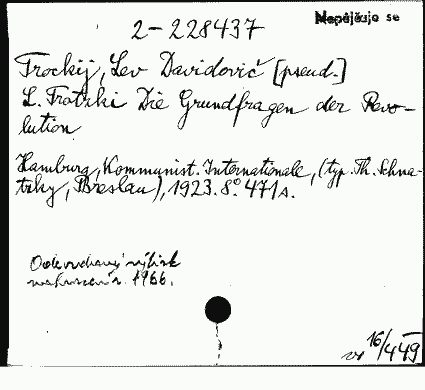 2-228437
Nepůjčuje se
Trockij, Lev Davidovič [pseud.]
L. Trotzki Die Grundfragen der Revo-
lution
Hamburg, Kommunist. Internationale, (typ. Th. Schna-
tzky, Breslau), 1923. 8° 471 s.
výtisk
r. 1966.
16/449